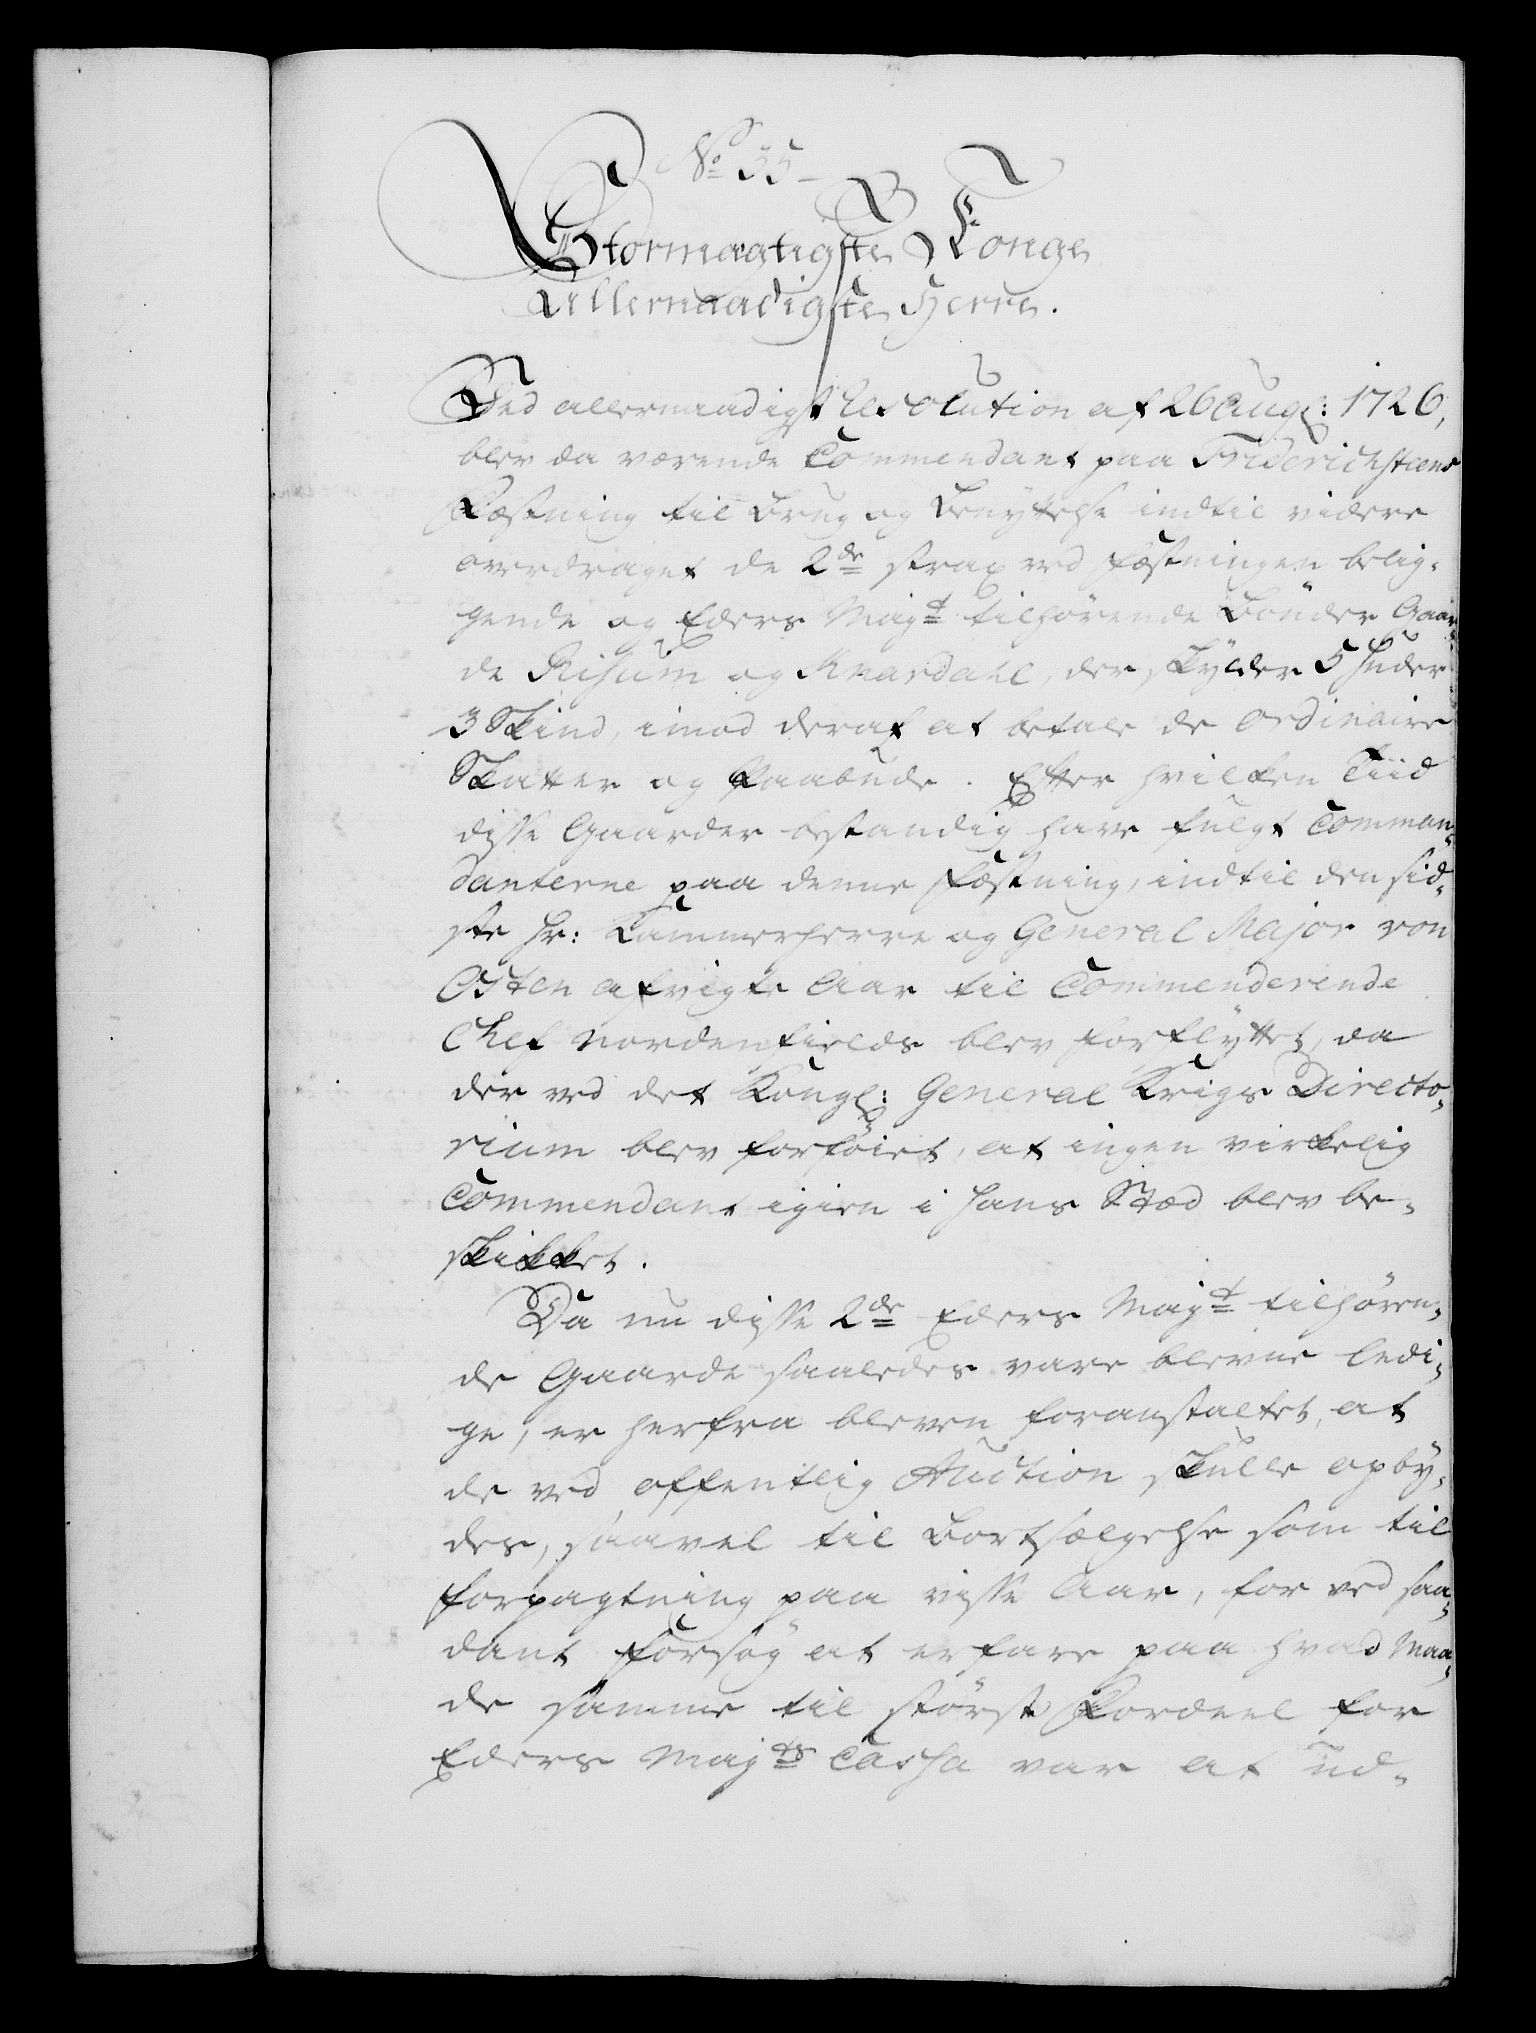 No 35
Stormægtigste Konge
Allernaadigste Herre.
Ved allernaadigst Resolution af 26 Aug: 1726,
blev da værende Commendant paa Friderichsteens
Fæstning til Brug og Benyttelse indtil videre
overdraget de 2de strax ved Fæstningen belig-
gende og Eders Mayt tilhørende Bønder Gaar-
de Risum og Knardahl, der skylder 5 Huder
3 Skind, imod deraf at betale de ordinaire
Skatter og Paabude. Efter hvilken Tiid
disse Gaarder bestandig have fulgt Comman-
danterne paa denne Fæstning, indtil den sid-
ste Hr: Kammerherre og General Major von
Osten afvigte Aar til Commenderende
Chef nordenfields blev forflyttet, da
der ved det Kongl: General Krigs Directo-
rium blev forføiet, at ingen virkelig
Commendant igien i hans Stæd blev be-
skikket.
Da nu disse 2de Eders Mayt tilhøren-
de Gaarde saaledes vare blevne ledi-
ge, er herfra bleven foranstaltet, at
de ved offentlig Auction skulle opby-
des, saavel til Bortsælgelse som til
Forpagtning paa visse Aar, for ved saa-
dant Forsøg at erfare paa hvad Maa-
de samme til størst Fordeel for
Eders Mayts Cassa var at ud-